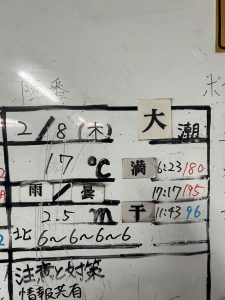 陸番
2/8(木) 大潮
17℃ 満 6:23/180
雨/曇 17:17/195
2.5m 干 11:43 96
北 6〜6〜6〜6
注意と対策
情報共有